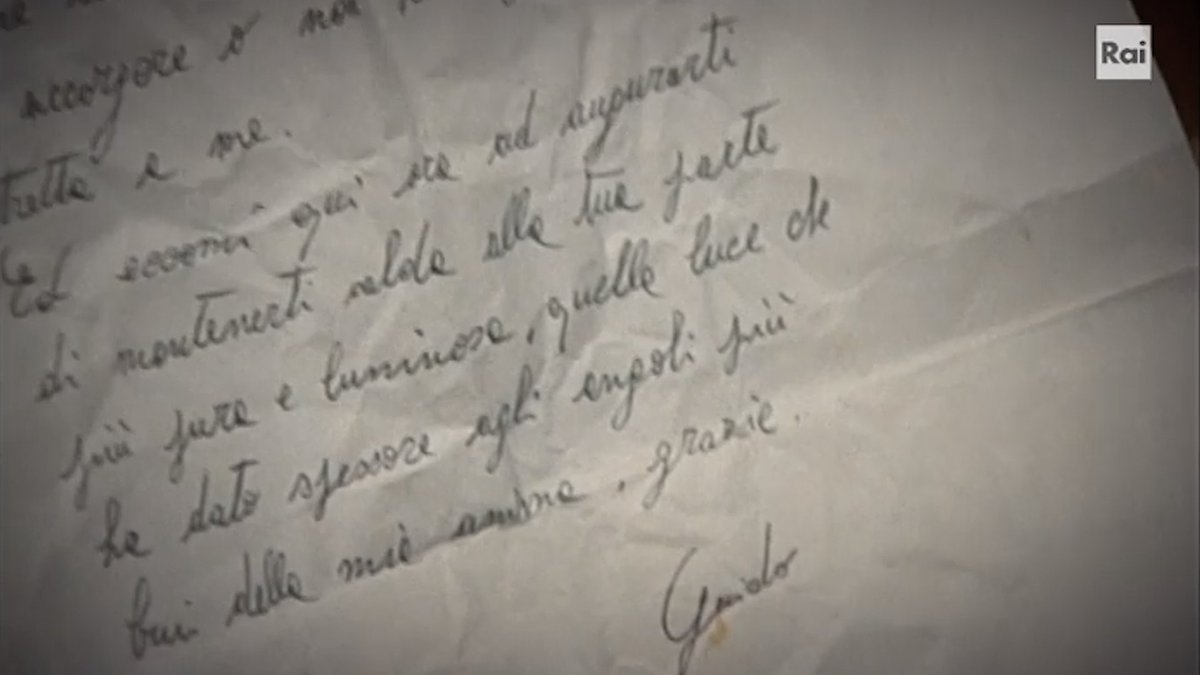 accorgere o non
tratta a me.
Ed eccomi qui ora ad augurarti
di mantenerti salda alla tua parte
più pura e luminosa, quella luce che
ha dato spessore agli angoli più
bui della mia anima, grazie.
Guido
Rai